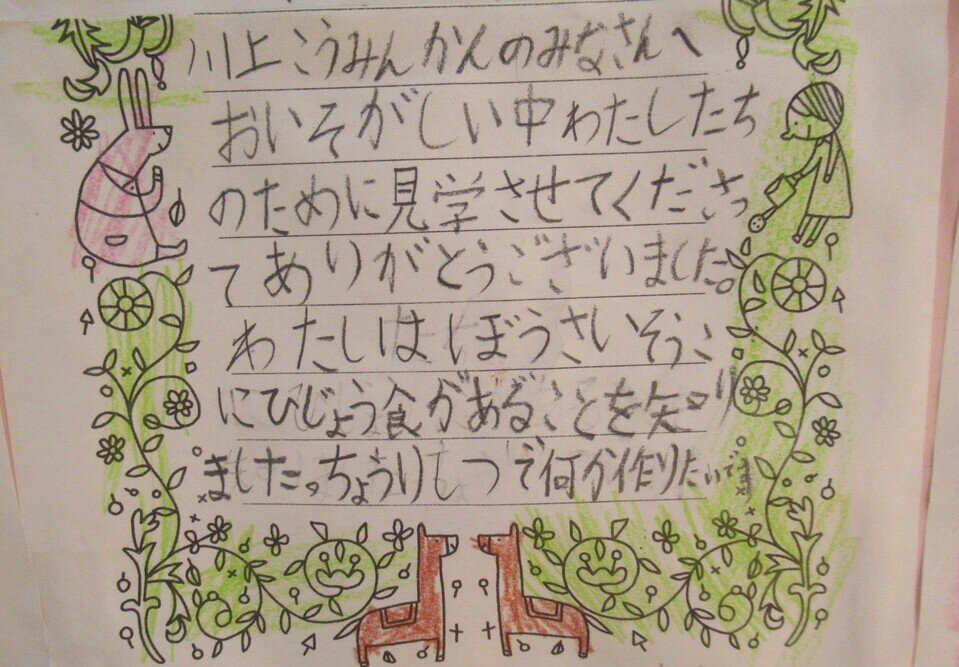 川上こうみんかんのみなさんへ
おいそがしい中わたしたち
のために見学させてくださっ
てありがとうございました。
わたしはぼうさいそうこ
にひじょう食があることを知り
ました。ちょうりしつで何か作りたいです